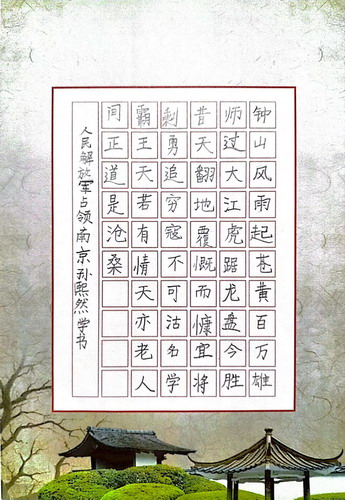 钟山风雨起苍黄百万雄
师过大江虎踞龙盘今胜
昔天翻地覆慨而慷宜将
剩勇追穷寇不可沽名学
霸王天若有情天亦老人
间正道是沧桑
人民解放军占领南京孙熙然学书